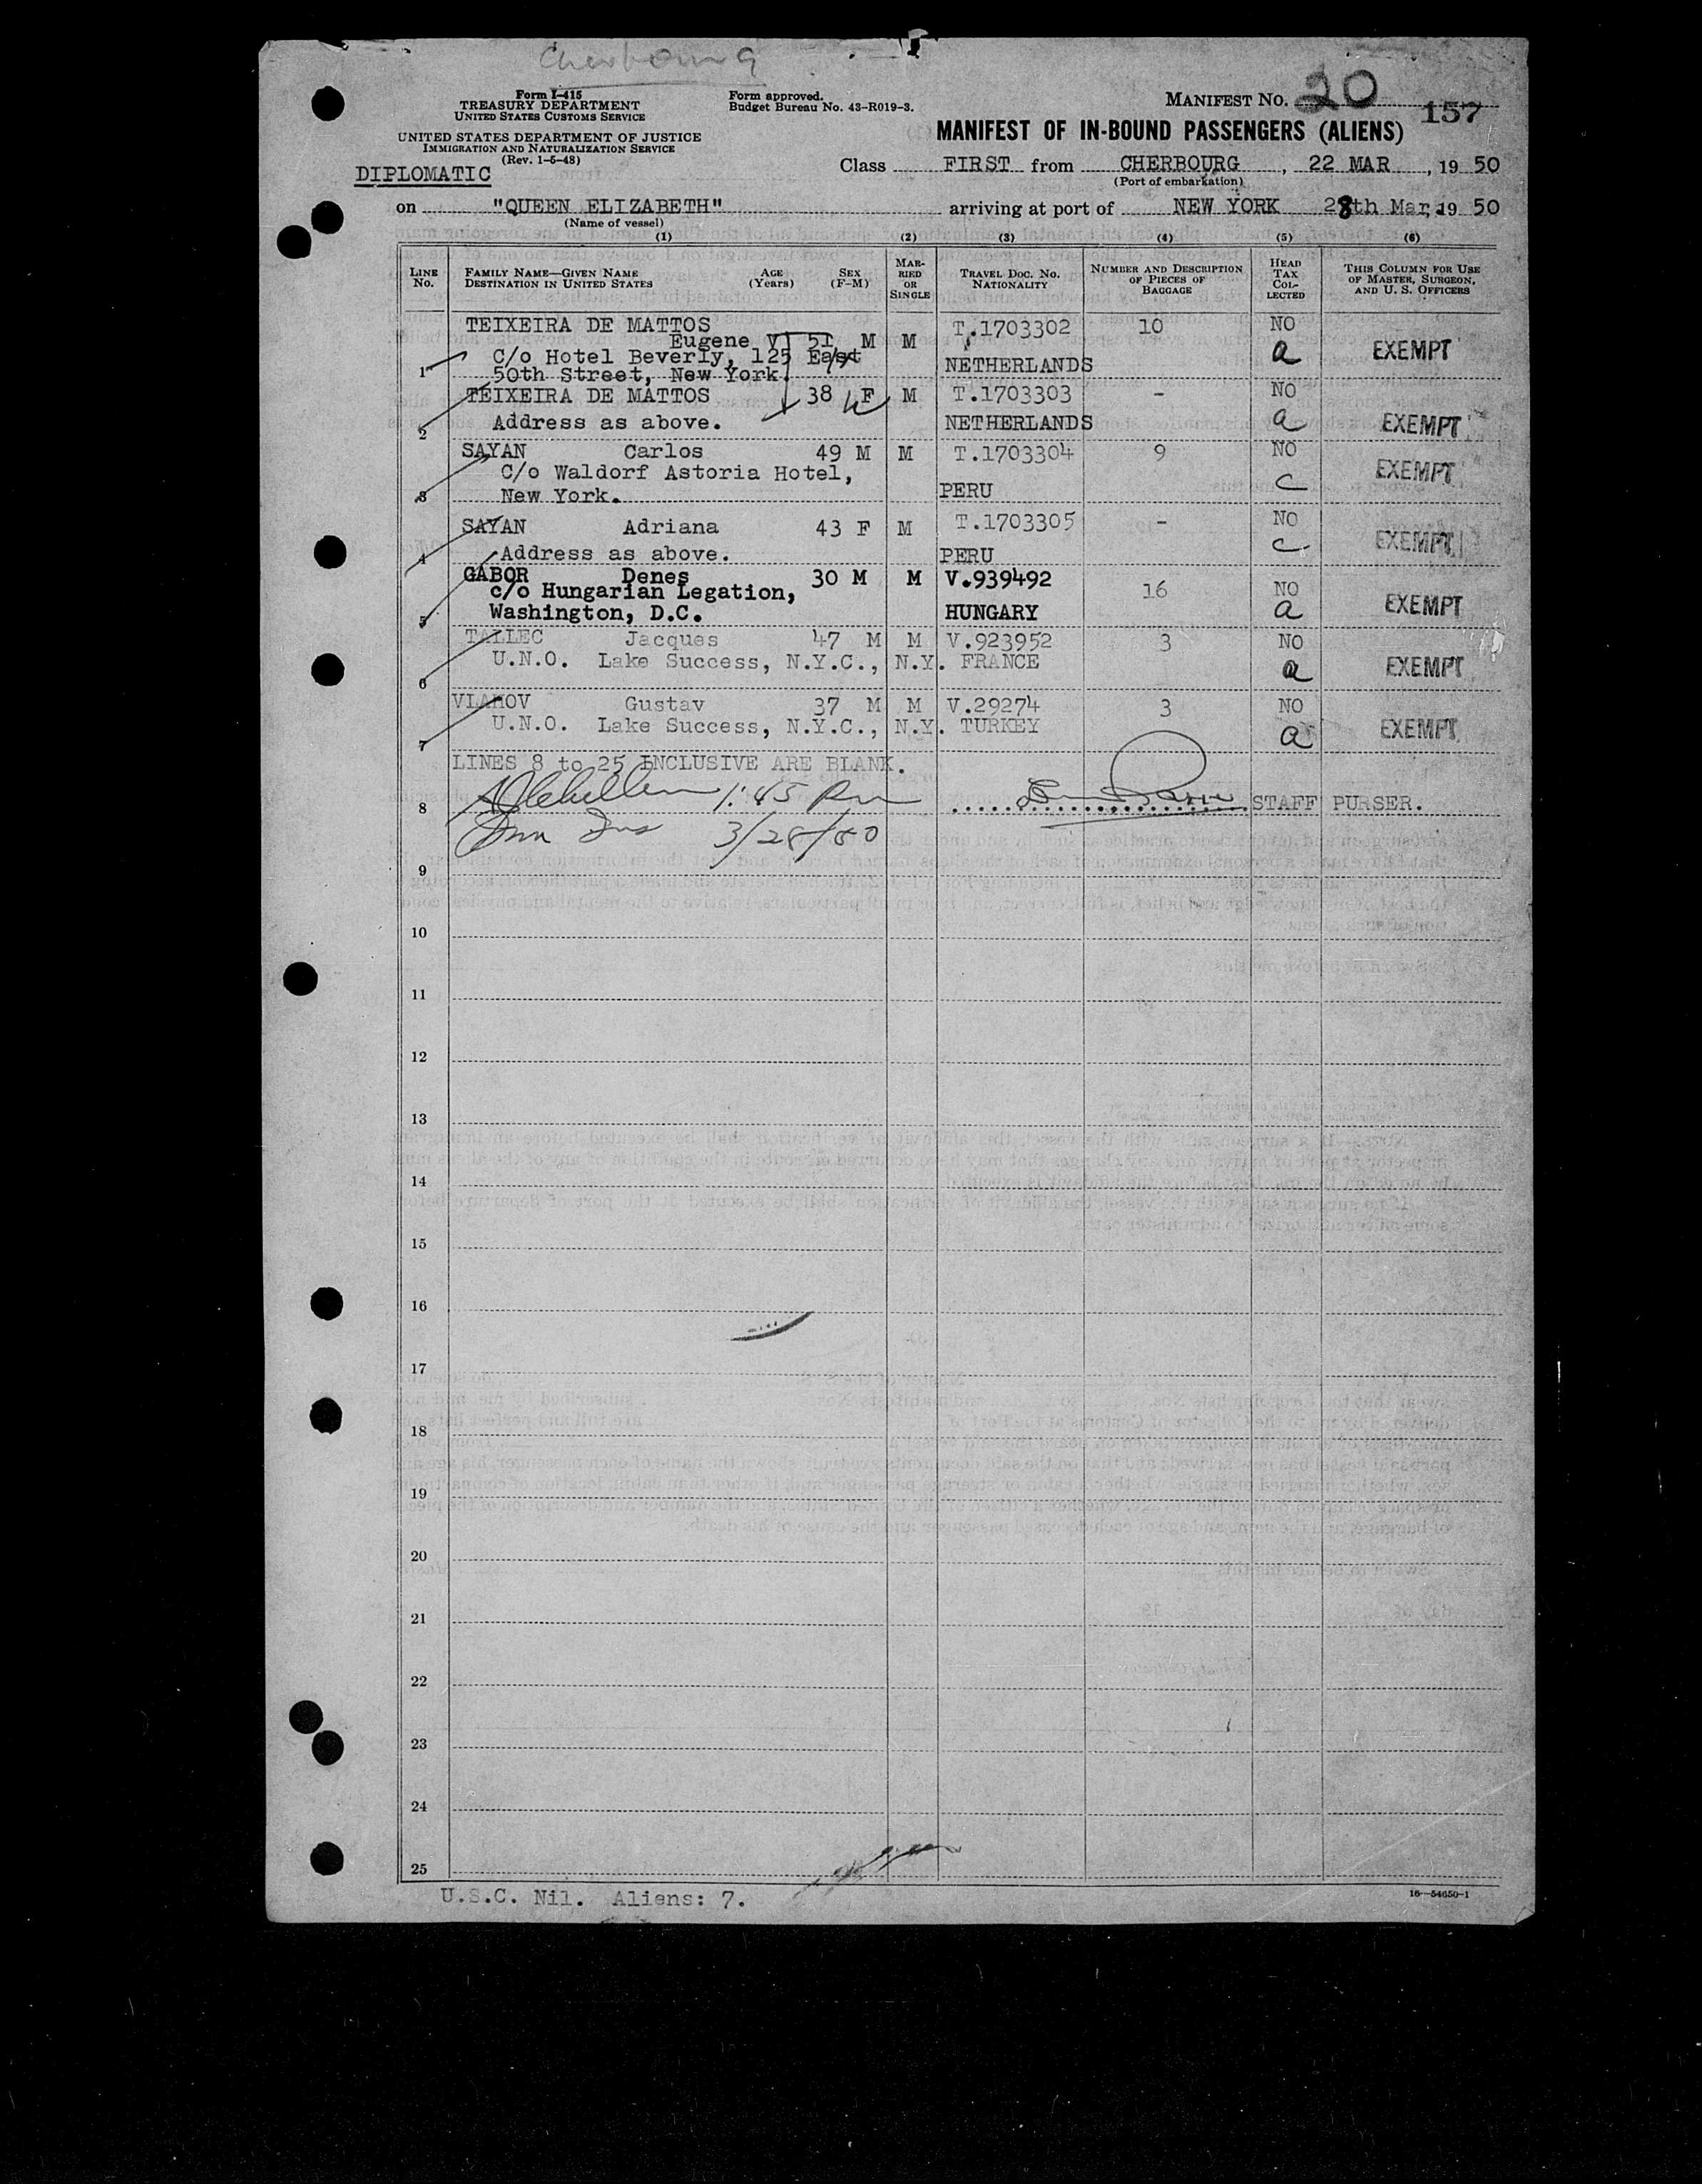 Cherbourg
Form I-415
TREASURY DEPARTMENT
UNITED STATES CUSTOMS SERVICE
UNITED STATES DEPARTMENT OF JUSTICE
IMMIGRATION AND NATURALIZATION SERVICE
(Rev. 1-5-48)
DIPLOMATIC
Form approved.
Budget Bureau No. 43-R019-3.
MANIFEST No. 20
157
MANIFEST OF IN-BOUND PASSENGERS (ALIENS)
Class FIRST from CHERBOURG, 22 MAR, 19 50
(Port of embarkation)
on "QUEEN ELIZABETH" arriving at port of NEW YORK 28th Mar, 19 50
(Name of vessel)
(1) (2) (3) (4) (5) (6)
LINE No. FAMILY NAME—GIVEN NAME DESTINATION IN UNITED STATES AGE (Years) SEX (F-M) MARRIED OR SINGLE TRAVEL DOC. NO. NATIONALITY NUMBER AND DESCRIPTION OF PIECES OF BAGGAGE HEAD TAX COLLECTED THIS COLUMN FOR USE OF MASTER, SURGEON, AND U. S. OFFICERS
TEIXEIRA DE MATTOS T.1703302 10 NO
Eugene V 51 M M
C/o Hotel Beverly, 125 East a EXEMPT
1 50th Street, New York. NETHERLANDS
TEIXEIRA DE MATTOS 38 F M T.1703303 - NO
2 Address as above. NETHERLANDS a EXEMPT
SAYAN Carlos 49 M M T.1703304 9 NO
C/o Waldorf Astoria Hotel, EXEMPT
3 New York. PERU c
SAYAN Adriana 43 F M T.1703305 - NO
4 Address as above. PERU c EXEMPT
GABOR Denes 30 M M V.939492 16 NO
c/o Hungarian Legation,
5 Washington, D.C. HUNGARY a EXEMPT
TALLEC Jacques 47 M M V.923952 3 NO
6 U.N.O. Lake Success, N.Y.C., N.Y. FRANCE a EXEMPT
VLAHOV Gustav 37 M M V.29274 3 NO
7 U.N.O. Lake Success, N.Y.C., N.Y. TURKEY a EXEMPT
LINES 8 to 25 INCLUSIVE ARE BLANK.
8 1:45 Pm STAFF PURSER.
Imm Ins 3/28/50
9
10
11
12
13
14
15
16
17
18
19
20
21
22
23
24
25
U.S.C. Nil. Aliens: 7.
16—54650-1